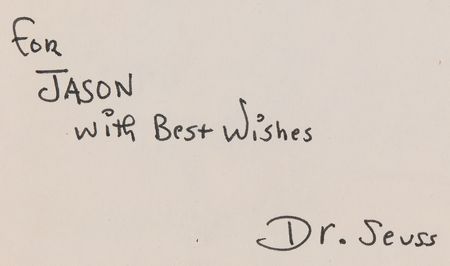 For
JASON
with Best Wishes
Dr. Seuss